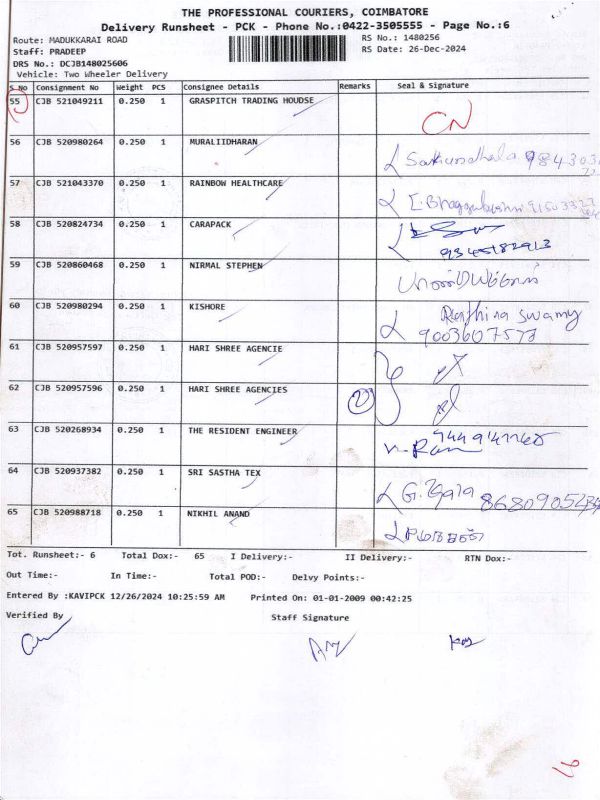 THE PROFESSIONAL COURIERS, COIMBATORE
Delivery Runsheet - PCK - Phone No.:0422-3505555 - Page No.:6
Route: MADUKKARAI ROAD
RS No.: 1480256
Staff: PRADEEP
RS Date: 26-Dec-2024
DRS No.: DCJB148025606
Vehicle: Two Wheeler Delivery
S No Consignment No Weight PCS Consignee Details Remarks Seal & Signature
55 CJB 521049211 0.250 1 GRASPITCH TRADING HOUDSE CN
56 CJB 520980264 0.250 1 MURALIIDHARAN
57 CJB 521043370 0.250 1 RAINBOW HEALTHCARE
58 CJB 520824734 0.250 1 CARAPACK
9345182913
59 CJB 520860468 0.250 1 NIRMAL STEPHEN
60 CJB 520980294 0.250 1 KISHORE Rathina swamy
9003607577
61 CJB 520957597 0.250 1 HARI SHREE AGENCIE
62 CJB 520957596 0.250 1 HARI SHREE AGENCIES 2
63 CJB 520268934 0.250 1 THE RESIDENT ENGINEER
64 CJB 520937382 0.250 1 SRI SASTHA TEX
65 CJB 520988718 0.250 1 NIKHIL ANAND
Tot. Runsheet:- 6 Total Dox:- 65 I Delivery:- II Delivery:- RTN Dox:-
Out Time:- In Time:- Total POD:- Delvy Points:-
Entered By :KAVIPCK 12/26/2024 10:25:59 AM Printed On: 01-01-2009 00:42:25
Verified By Staff Signature